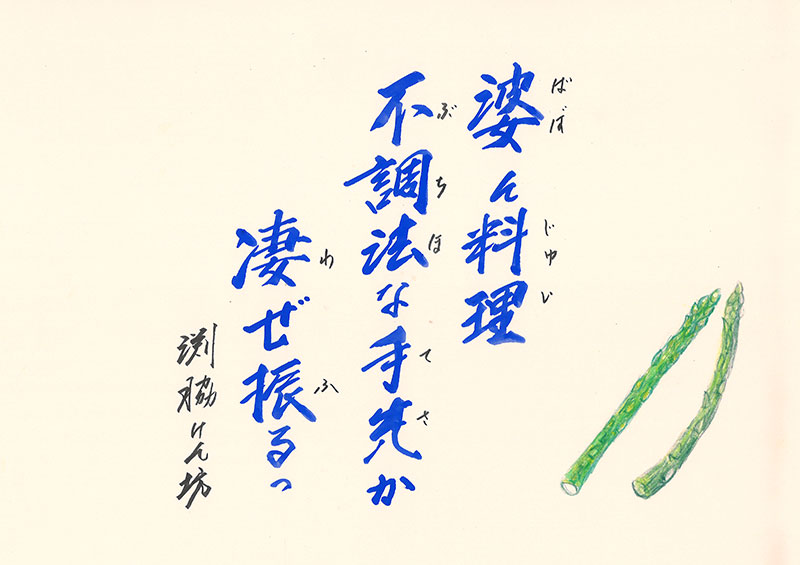 婆ん料理
ばぼ じゅい
不調法な手先か
ぶちほ てさ
凄ぜ振るっ
わ ふ
渕脇けん坊